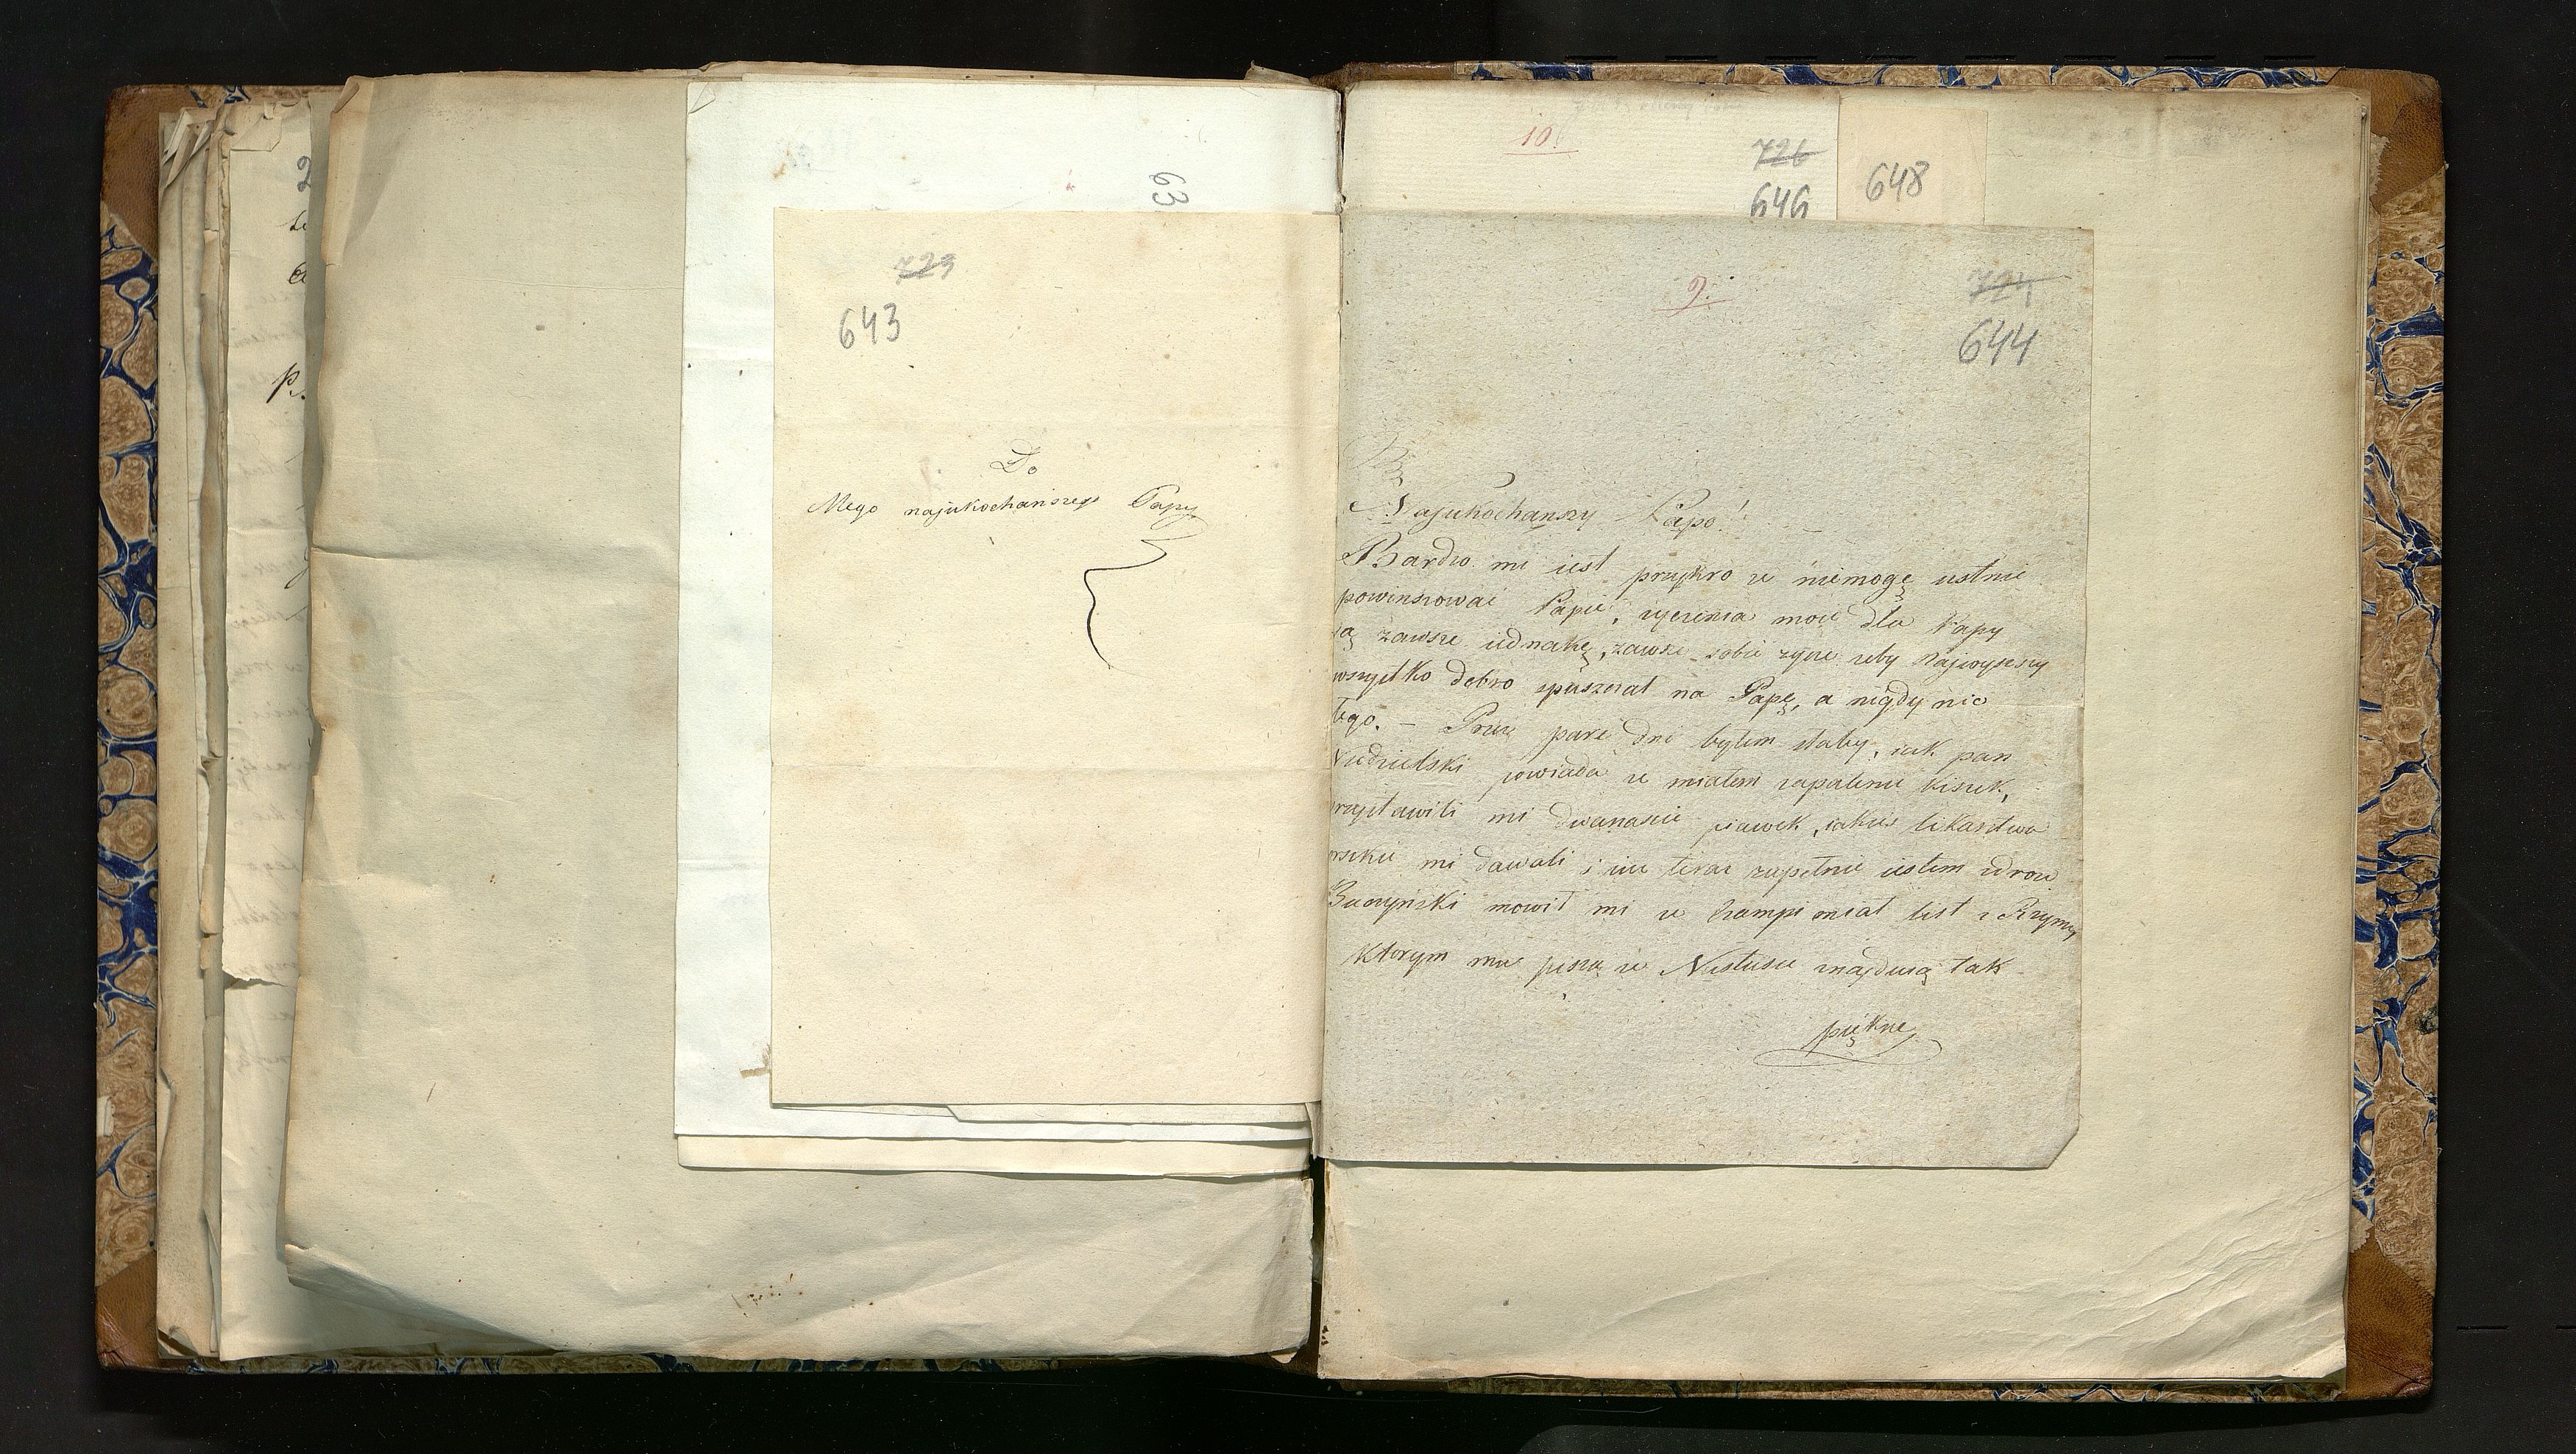 63
723
643
Do
Mego najukochańszego Papy
10.
726
646
648
9.
724
644
Najukochanszy Papo!
Bardzo mi iest przykro ze niemogę ustnie
powinszować Papie, życzenia moie dla Papy
są zawsze iednakę, zawsze sobie zyczę zeby Najwyzszy
wszystko dobro spuszczał na Papę, a nigdy nic
złego. – Przez parę dni byłem słaby, iak pan
Niedzielski powiada ze miałem zapalenie kiszek,
przystawili mi dwanascie piawek, iakies likarstwa
mi dawali i iuz teraz zupełnie iestem zdrow
Buczyński mowił mi ze Krampi miał list z Rzymu
Ktorym mu piszą ze Nustusie znajdują tak
piękne